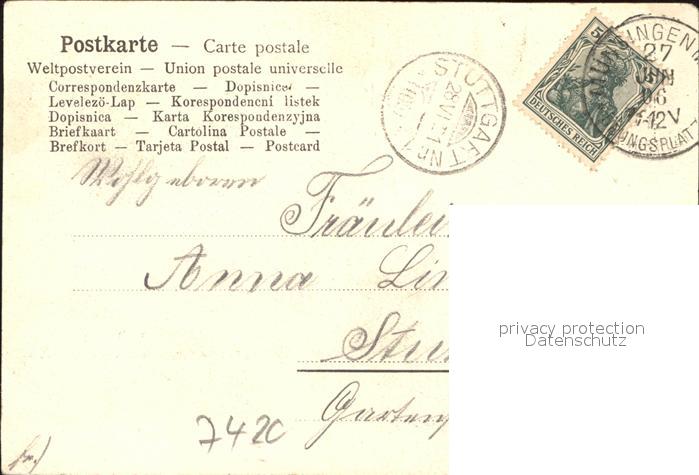 Postkarte — Carte postale
Weltpostverein — Union postale universelle
Correspondenzkarte — Dopisnice —
Levelező-Lap — Korespondencni listek
Dopisnica — Karta Korespondenzyjna
Briefkaart — Cartolina Postale —
Brefkort — Tarjeta Postal — Postcard
STUTTGART Nr. 1
28 VI
5
DEUTSCHES REICH
27
JUN
06
-12V
Wohlgeboren
Fräulei
Anna Lin
Stu
Garten
privacy protection
Datenschutz
7420